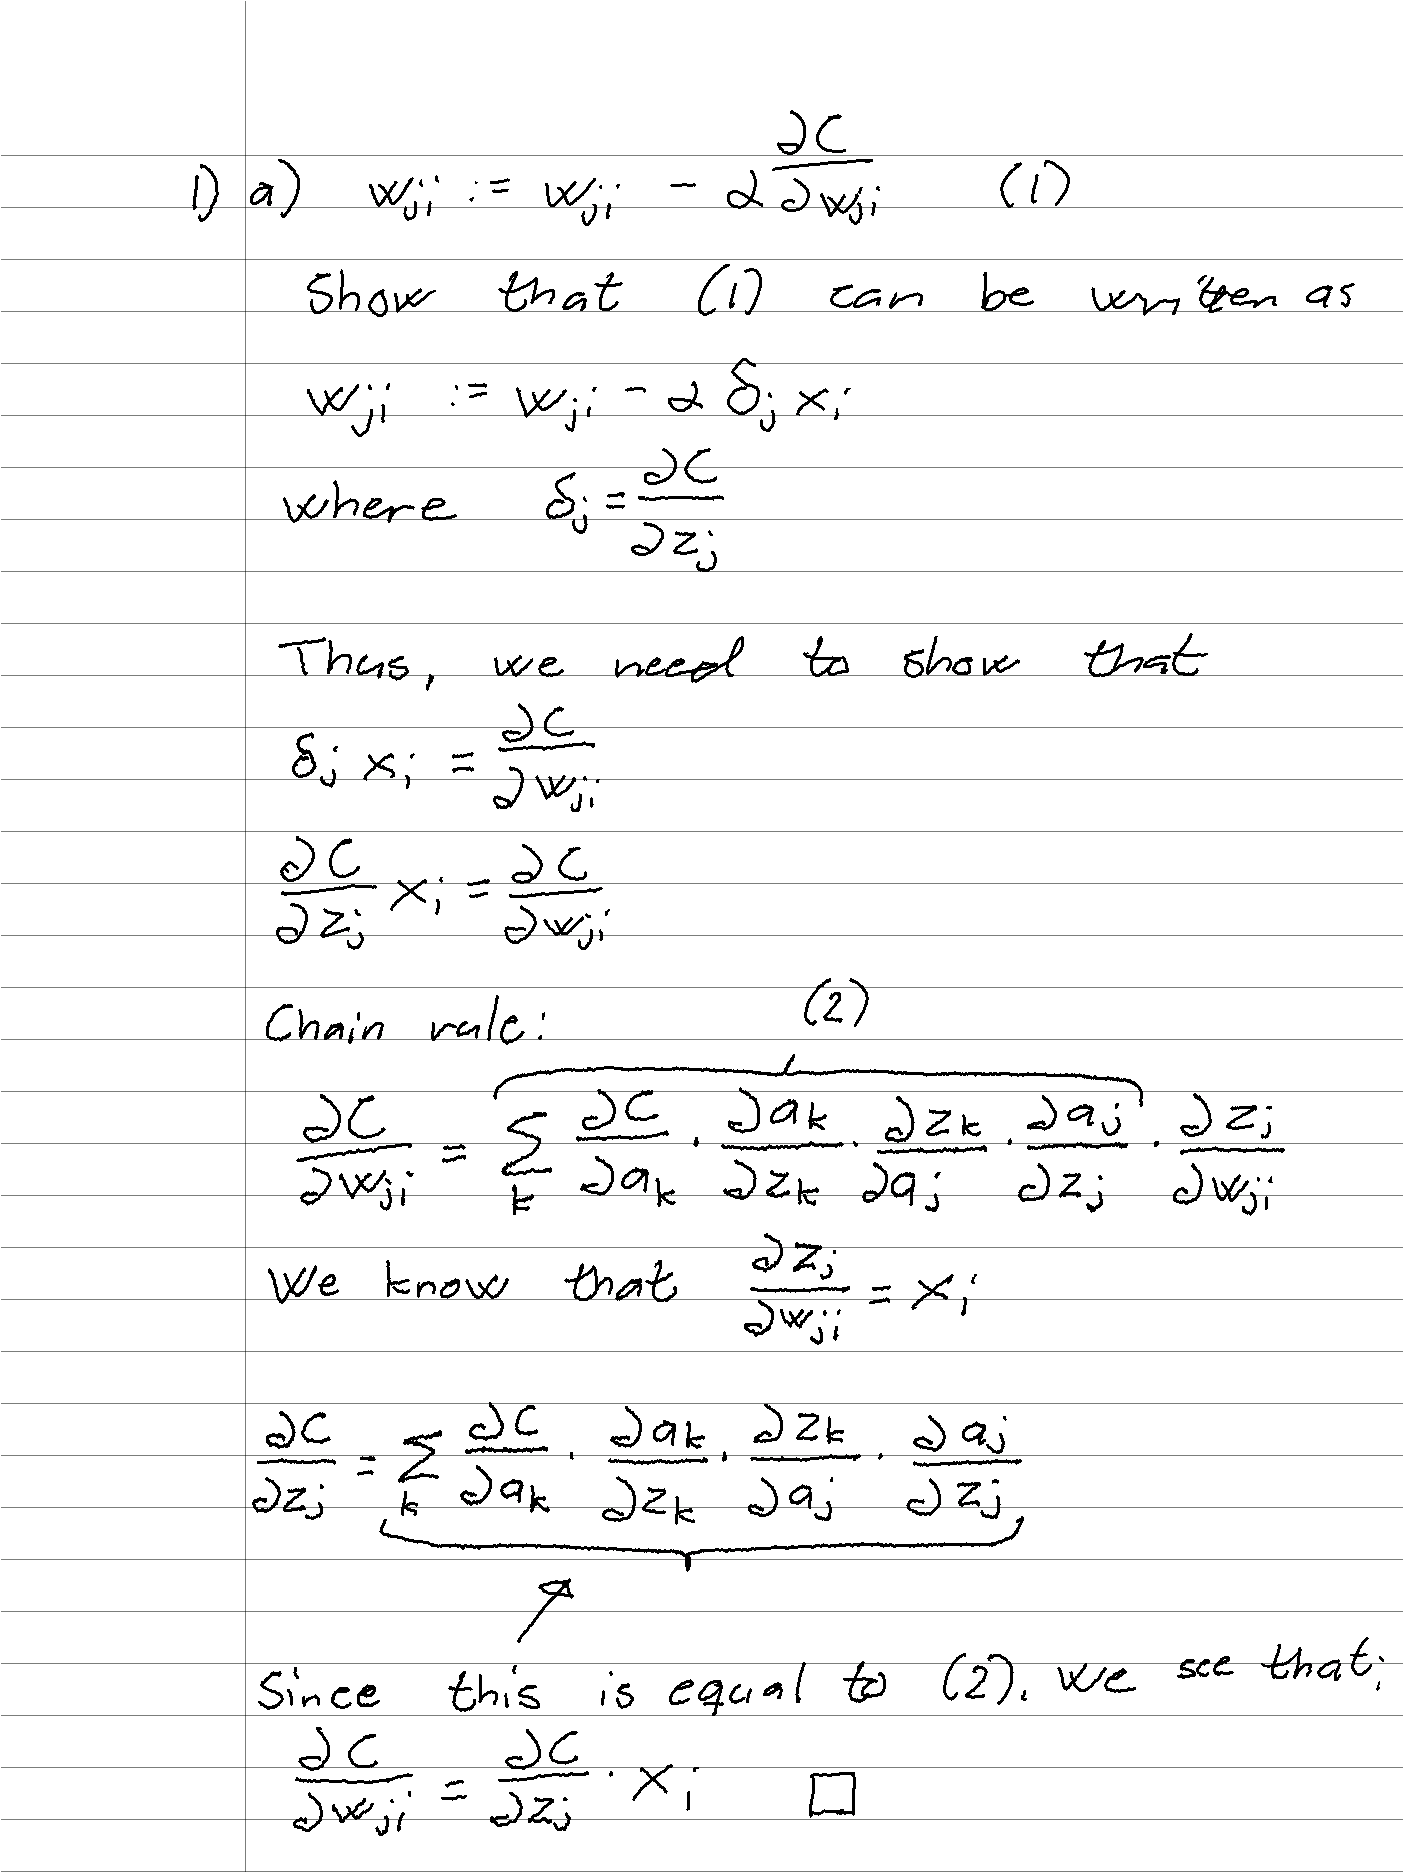 1) a) w_ji := w_ji - α ∂C/∂w_ji (1)
Show that (1) can be written as
w_ji := w_ji - α δ_j x_i
where δ_j = ∂C/∂z_j
Thus, we need to show that
δ_j x_i = ∂C/∂w_ji
∂C/∂z_j x_i = ∂C/∂w_ji
Chain rule: (2)
∂C/∂w_ji = Σ_k ∂C/∂a_k · ∂a_k/∂z_k · ∂z_k/∂a_j · ∂a_j/∂z_j · ∂z_j/∂w_ji
We know that ∂z_j/∂w_ji = x_i
∂C/∂z_j = Σ_k ∂C/∂a_k · ∂a_k/∂z_k · ∂z_k/∂a_j · ∂a_j/∂z_j
Since this is equal to (2), we see that:
∂C/∂w_ji = ∂C/∂z_j · x_i □